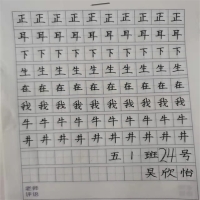 正 正 正 正 正 正 正 正 正
耳 耳 耳 耳 耳 耳 耳 耳 耳
下 下 下 下 下 下 下 下 下
生 生 生 生 生 生 生 生 生
在 在 在 在 在 在 在 在 在
我 我 我 我 我 我 我 我 我
牛 牛 牛 牛 牛 牛 牛 牛 牛
井 井 井 井 井 井 井 井 井
五 1 班 24 号
吴 欣 怡